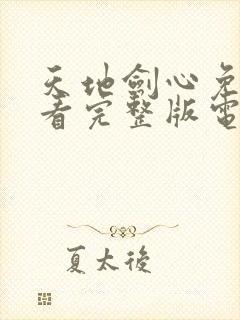 天地劍心免
看完整版電
夏太後